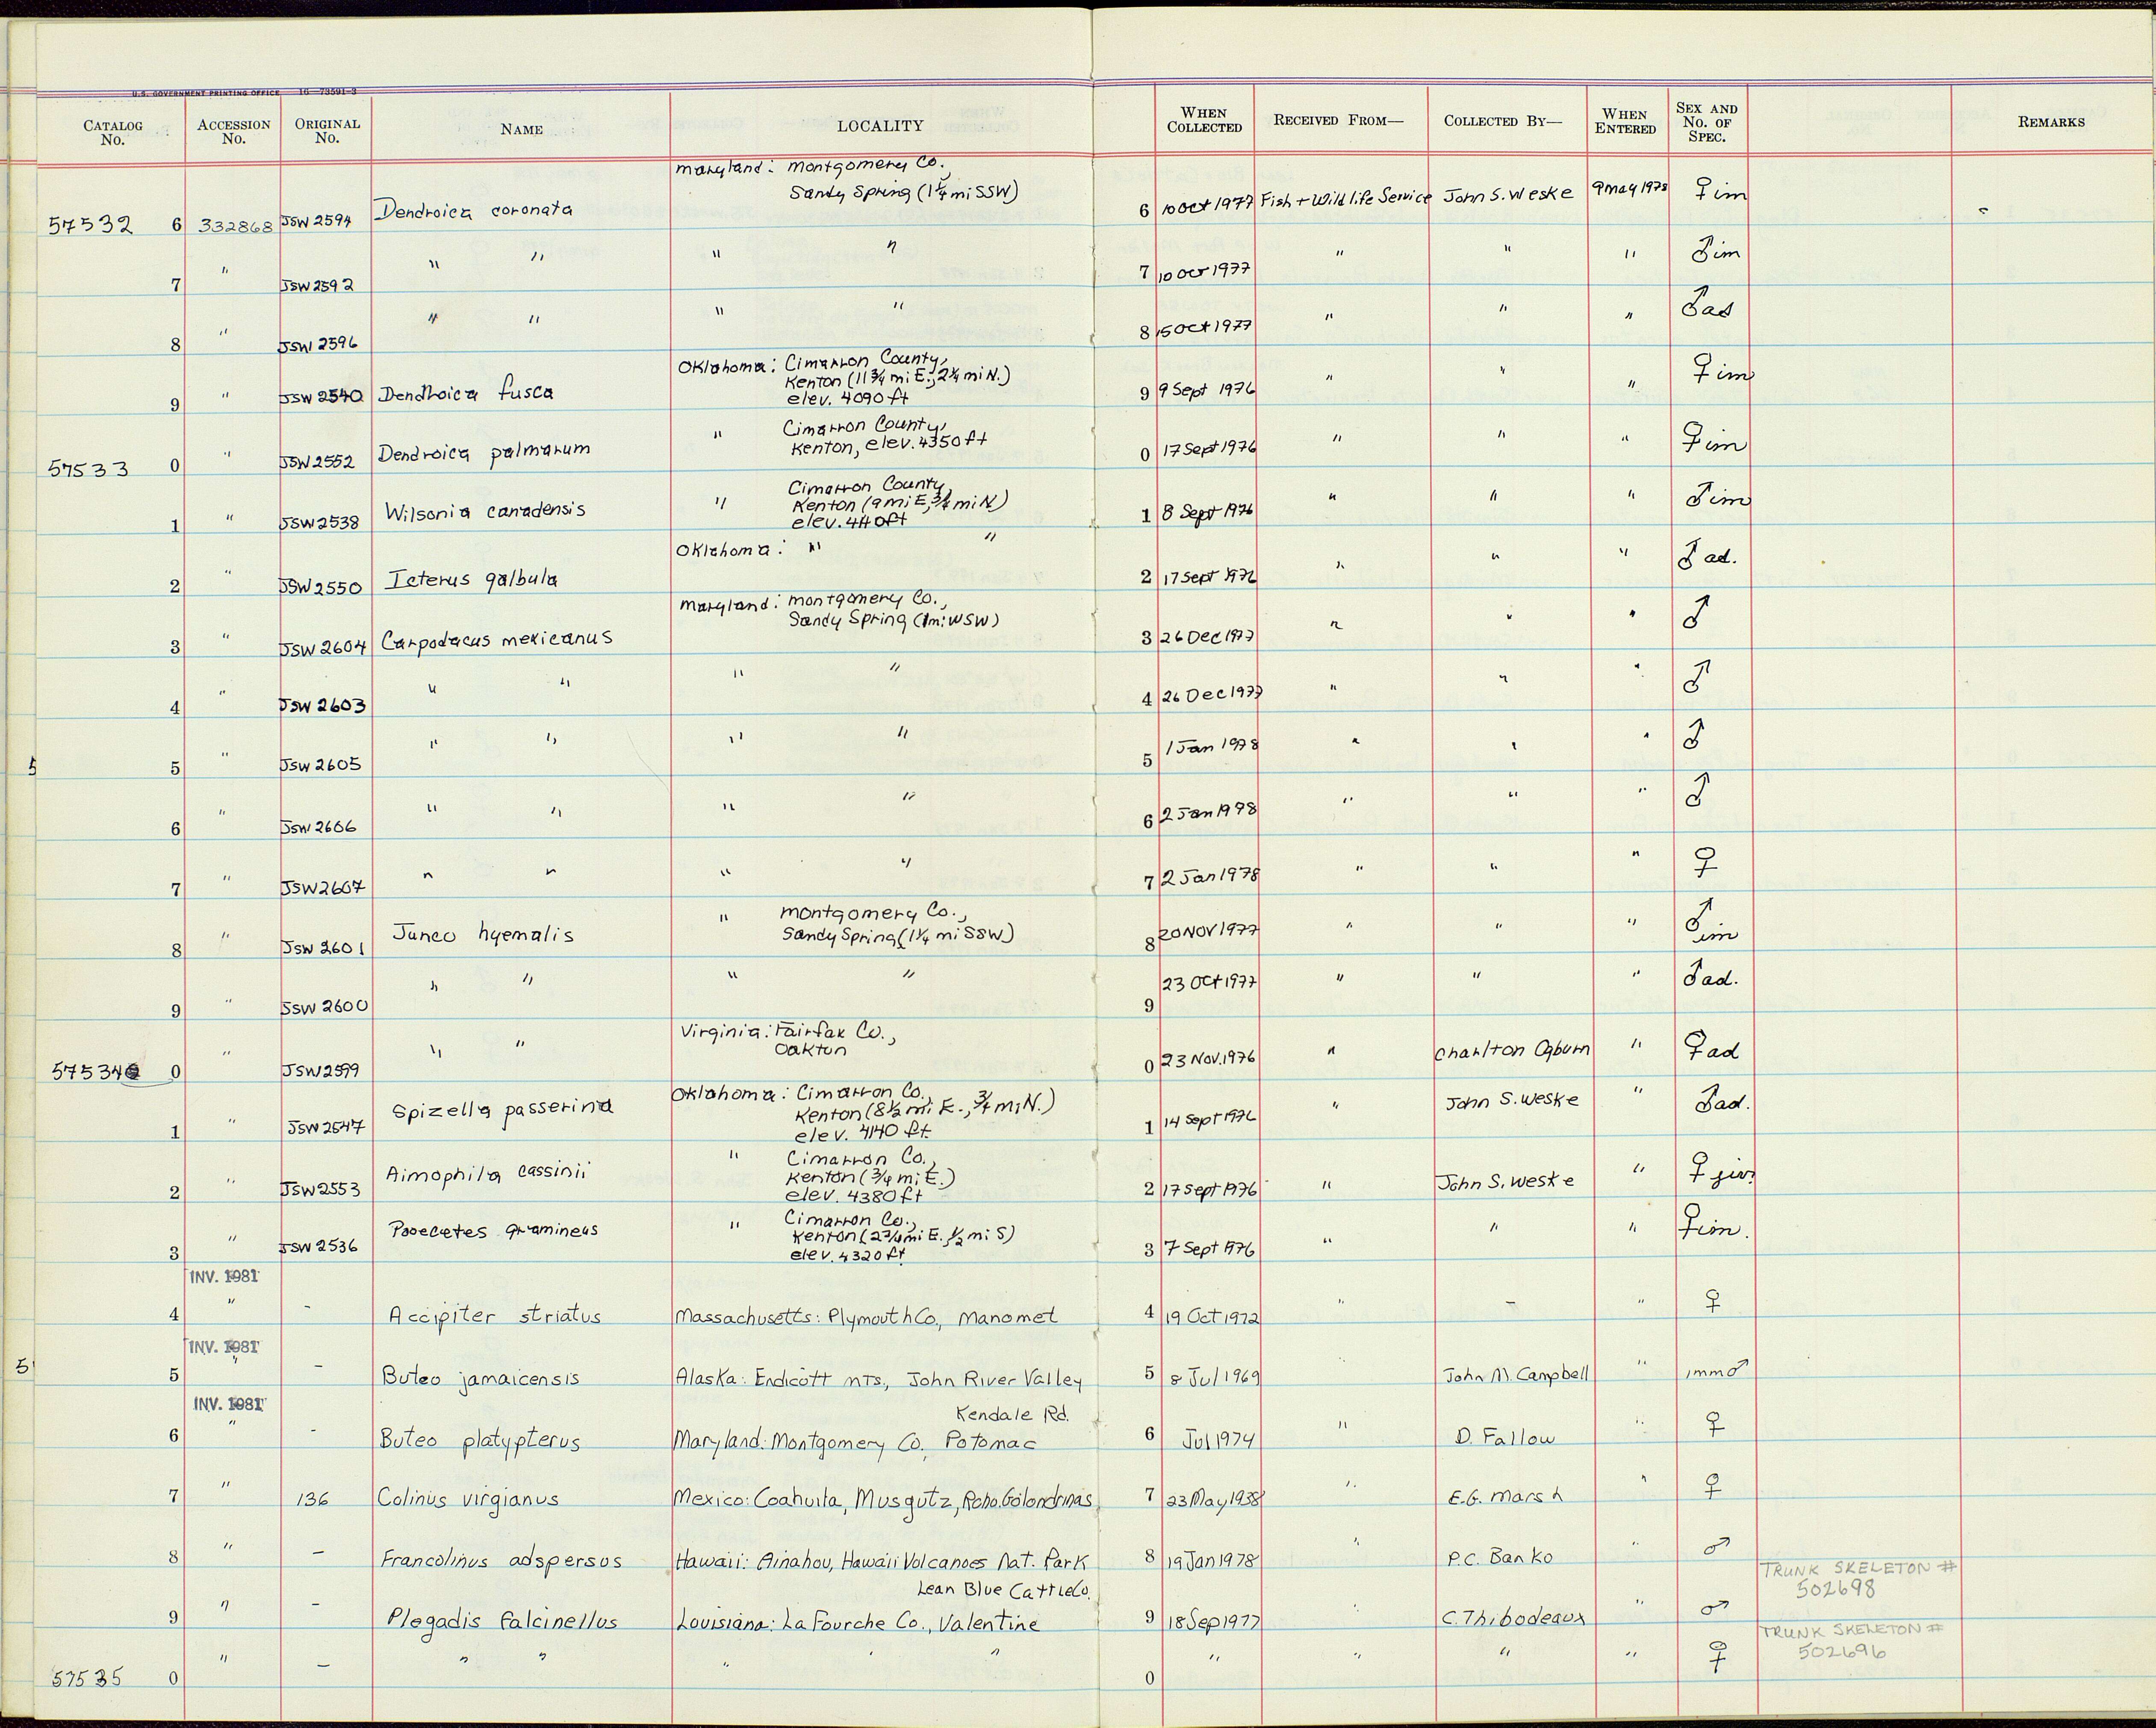 U.S. GOVERNMENT PRINTING OFFICE 16—73591-3
CATALOG No. ACCESSION No. ORIGINAL No. NAME LOCALITY WHEN COLLECTED RECEIVED FROM— COLLECTED BY— WHEN ENTERED SEX AND No. OF SPEC. REMARKS
Maryland: Montgomery Co.,
Sandy Spring (1¼ mi SSW)
57532 6 332868 JSW 2594 Dendroica coronata 6 10 Oct 1977 Fish + Wildlife Service John S. Weske 9 May 1978 ♀ im
7 " JSW 2592 " " " " 7 10 Oct 1977 " " " ♂ im
8 " JSW 2596 " " " " 8 15 Oct 1977 " " " ♂ ad
Oklahoma: Cimarron County,
Kenton (11¾ mi E., 2¼ mi N.)
9 " JSW 2540 Dendroica fusca elev. 4090 ft 9 9 Sept 1976 " " " ♀ im
" Cimarron County,
57533 0 " JSW 2552 Dendroica palmarum Kenton, elev. 4350 ft 0 17 Sept 1976 " " " ♀ im
Cimarron County,
" Kenton (9 mi E, ¾ mi N)
1 " JSW 2538 Wilsonia canadensis elev. 4110 ft 1 8 Sept 1976 " " " ♂ im
Oklahoma: " "
2 " JSW 2550 Icterus galbula 2 17 Sept 1976 " " " ♂ ad.
Maryland: Montgomery Co.,
Sandy Spring (1 mi WSW)
3 " JSW 2604 Carpodacus mexicanus 3 26 Dec 1977 " " " ♂
4 " JSW 2603 " " " " 4 26 Dec 1977 " " " ♂
5 5 " JSW 2605 " " " " 5 1 Jan 1978 " " " ♂
6 " JSW 2606 " " " " 6 2 Jan 1978 " " " ♂
7 " JSW 2607 " " " " 7 2 Jan 1978 " " " ♀
" Montgomery Co.,
8 " JSW 2601 Junco hyemalis Sandy Spring (1¼ mi SSW) 8 20 Nov 1977 " " " ♂ im
9 " JSW 2600 " " " " 9 23 Oct 1977 " " " ♂ ad.
Virginia: Fairfax Co.,
Oakton
57534 0 " JSW 2599 " " 0 23 Nov. 1976 " Charlton Ogburn " ♀ ad
Oklahoma: Cimarron Co.,
Kenton (8½ mi E., ¾ mi N.)
1 " JSW 2547 Spizella passerina elev. 4140 ft. 1 14 Sept 1976 " John S. Weske " ♂ ad.
" Cimarron Co.,
Kenton (¾ mi E.)
2 " JSW 2553 Aimophila cassinii elev. 4380 ft 2 17 Sept 1976 " John S. Weske " ♀ juv.
" Cimarron Co.,
Kenton (2¾ mi E., ½ mi S)
3 " JSW 2536 Pooecetes gramineus elev. 4320 ft 3 7 Sept 1976 " " " ♀ im.
INV. 1981
4 " - Accipiter striatus Massachusetts: Plymouth Co, Manomet 4 19 Oct 1972 " - " ♀
INV. 1981
5 5 " - Buteo jamaicensis Alaska: Endicott mts, John River Valley 5 8 Jul 1969 " John M. Campbell " imm ♂
INV. 1981
Kendale Rd.
6 " - Buteo platypterus Maryland: Montgomery Co, Potomac 6 Jul 1974 " D. Fallow " ♀
7 " 136 Colinus virgianus Mexico: Coahuila, Musqutz, Rcho. Golondrinas 7 23 May 1938 " E.G. Marsh " ♀
8 " - Francolinus adspersus Hawaii: Ainahou, Hawaii Volcanoes Nat. Park 8 19 Jan 1978 " P.C. Banko " ♂
Lean Blue Cattle Co. TRUNK SKELETON # 502698
9 " - Plegadis falcinellus Louisiana: La Fourche Co., Valentine 9 18 Sep 1977 " C. Thibodeaux " ♂
TRUNK SKELETON # 502696
57535 0 " - " " " " " 0 " " " " ♀